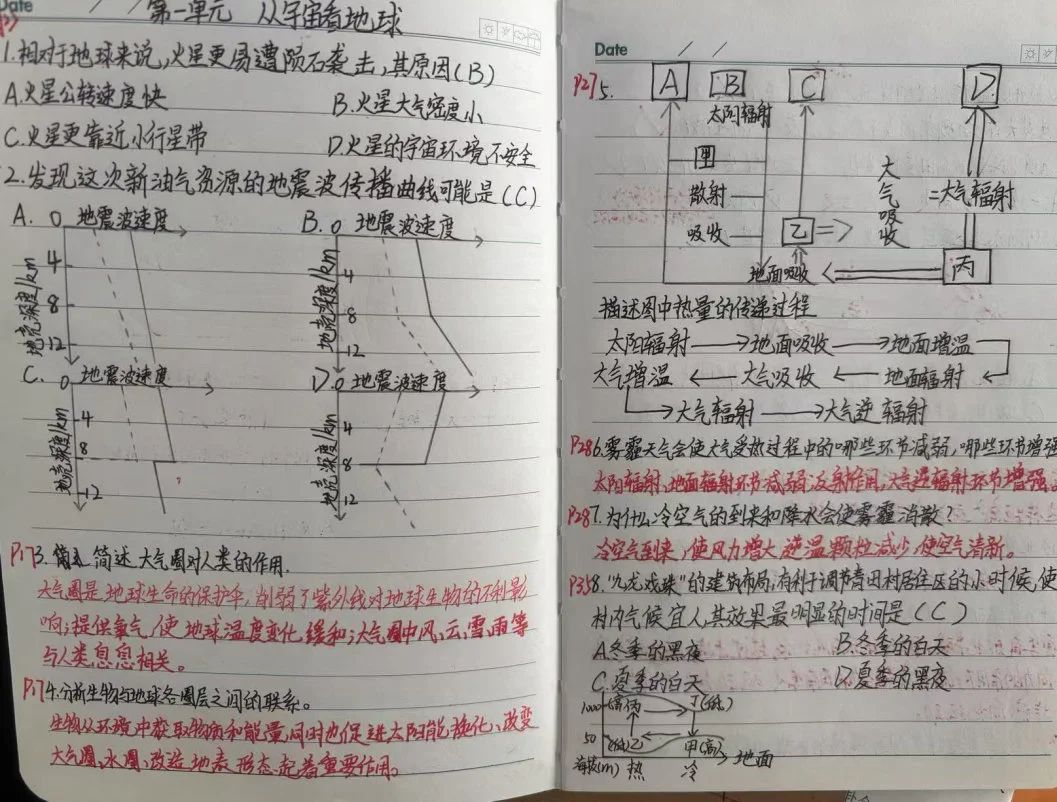 Date
第一单元 从宇宙看地球
1.相对于地球来说,火星更易遭陨石袭击,其原因(B)
A.火星公转速度快 B.火星大气密度小
C.火星更靠近小行星带 D.火星的宇宙环境不安全
2.发现这次新油气资源的地震波传播曲线可能是(C)
A. 0 地震波速度 B. 0 地震波速度
4
8
12
地壳深度/km
4
8
12
地壳深度/km
C. 0 地震波速度 D 0 地震波速度
4
8
12
地壳深度/km
4
8
12
地壳深度/km
P17 3. 简述大气圈对人类的作用.
大气圈是地球生命的保护伞,削弱了紫外线对地球生物的不利影
响;提供氧气,使地球温度变化缓和;大气圈中风、云、雪、雨等
与人类息息相关。
P17 4.分析生物与地球各圈层之间的联系。
生物从环境中获取物质和能量,同时也促进太阳能转化、改变
大气圈、水圈、改造地表形态起着重要作用。
Date
P27 5. A B C D
太阳辐射
甲
散射
吸收
乙
大气吸收
大气辐射
丙
地面吸收
描述图中热量的传递过程
太阳辐射→地面吸收→地面增温
大气增温←大气吸收←地面辐射
→大气辐射→大气逆辐射
P28 6.雾霾天气会使大气受热过程中的哪些环节减弱,哪些环节增强
太阳辐射、地面辐射环节减弱;反射作用,大气逆辐射环节增强。
P28 7.为什么冷空气的到来和降水会使雾霾消散?
冷空气到来,使风力增大,逆温颗粒减少,使空气清新。
P35 8."九龙戏珠"的建筑布局,有利于调节青田村居住区的小时候,使
村内气候宜人,其效果最明显的时间是(C)
A.冬季的黑夜 B.冬季的白天
C.夏季的白天 D.夏季的黑夜
1000 (高)丙 丁(低)
50 (低)乙 甲(高) 地面
海拔(m) 热 冷